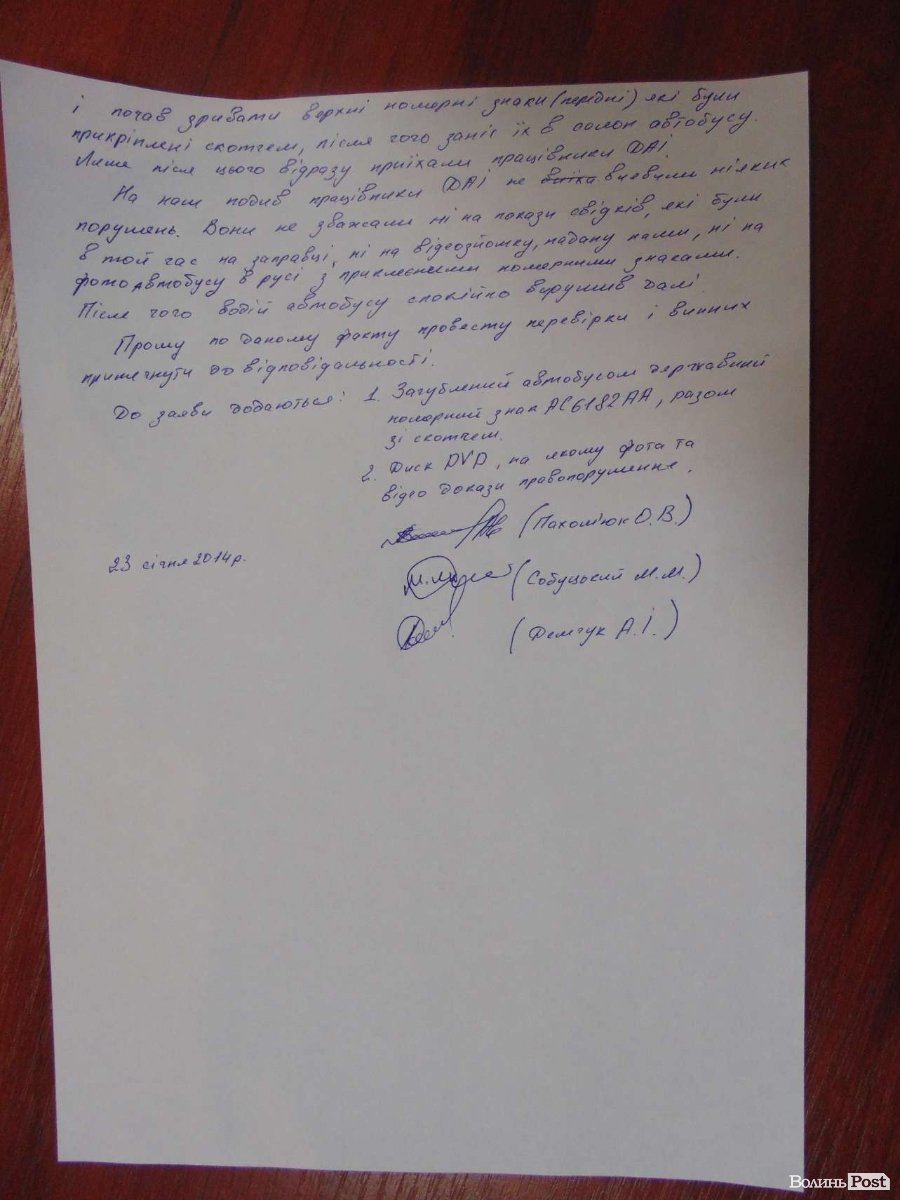 і почав зривати верхні номерні знаки (передні) які були
прикріплені скотчем, після чого заніс їх в салон автобусу.
Лише після цього відразу приїхали працівники ДАІ.
На наш подив працівники ДАІ не виявили ніяких
порушень. Вони не зважали ні на покази свідків, які були
в той час на заправці, ні на відеозйомку, надану нами, ні на
фото автобусу в русі з приклеєними номерними знаками.
Після чого водій автобусу спокійно вирушив далі.
Прошу по даному факту провести перевірки і винних
притягнути до відповідальності.
До заяви додаються: 1. Загублений автобусом державний
номерний знак АС6182АА, разом
зі скотчем.
2. Диск DVD, на якому фота та
відео докази правопорушення.
(Пахолюк О.В.)
23 січня 2014 р.
(Собуцький М.М.)
(Демчук А.І.)
ВолиньPost